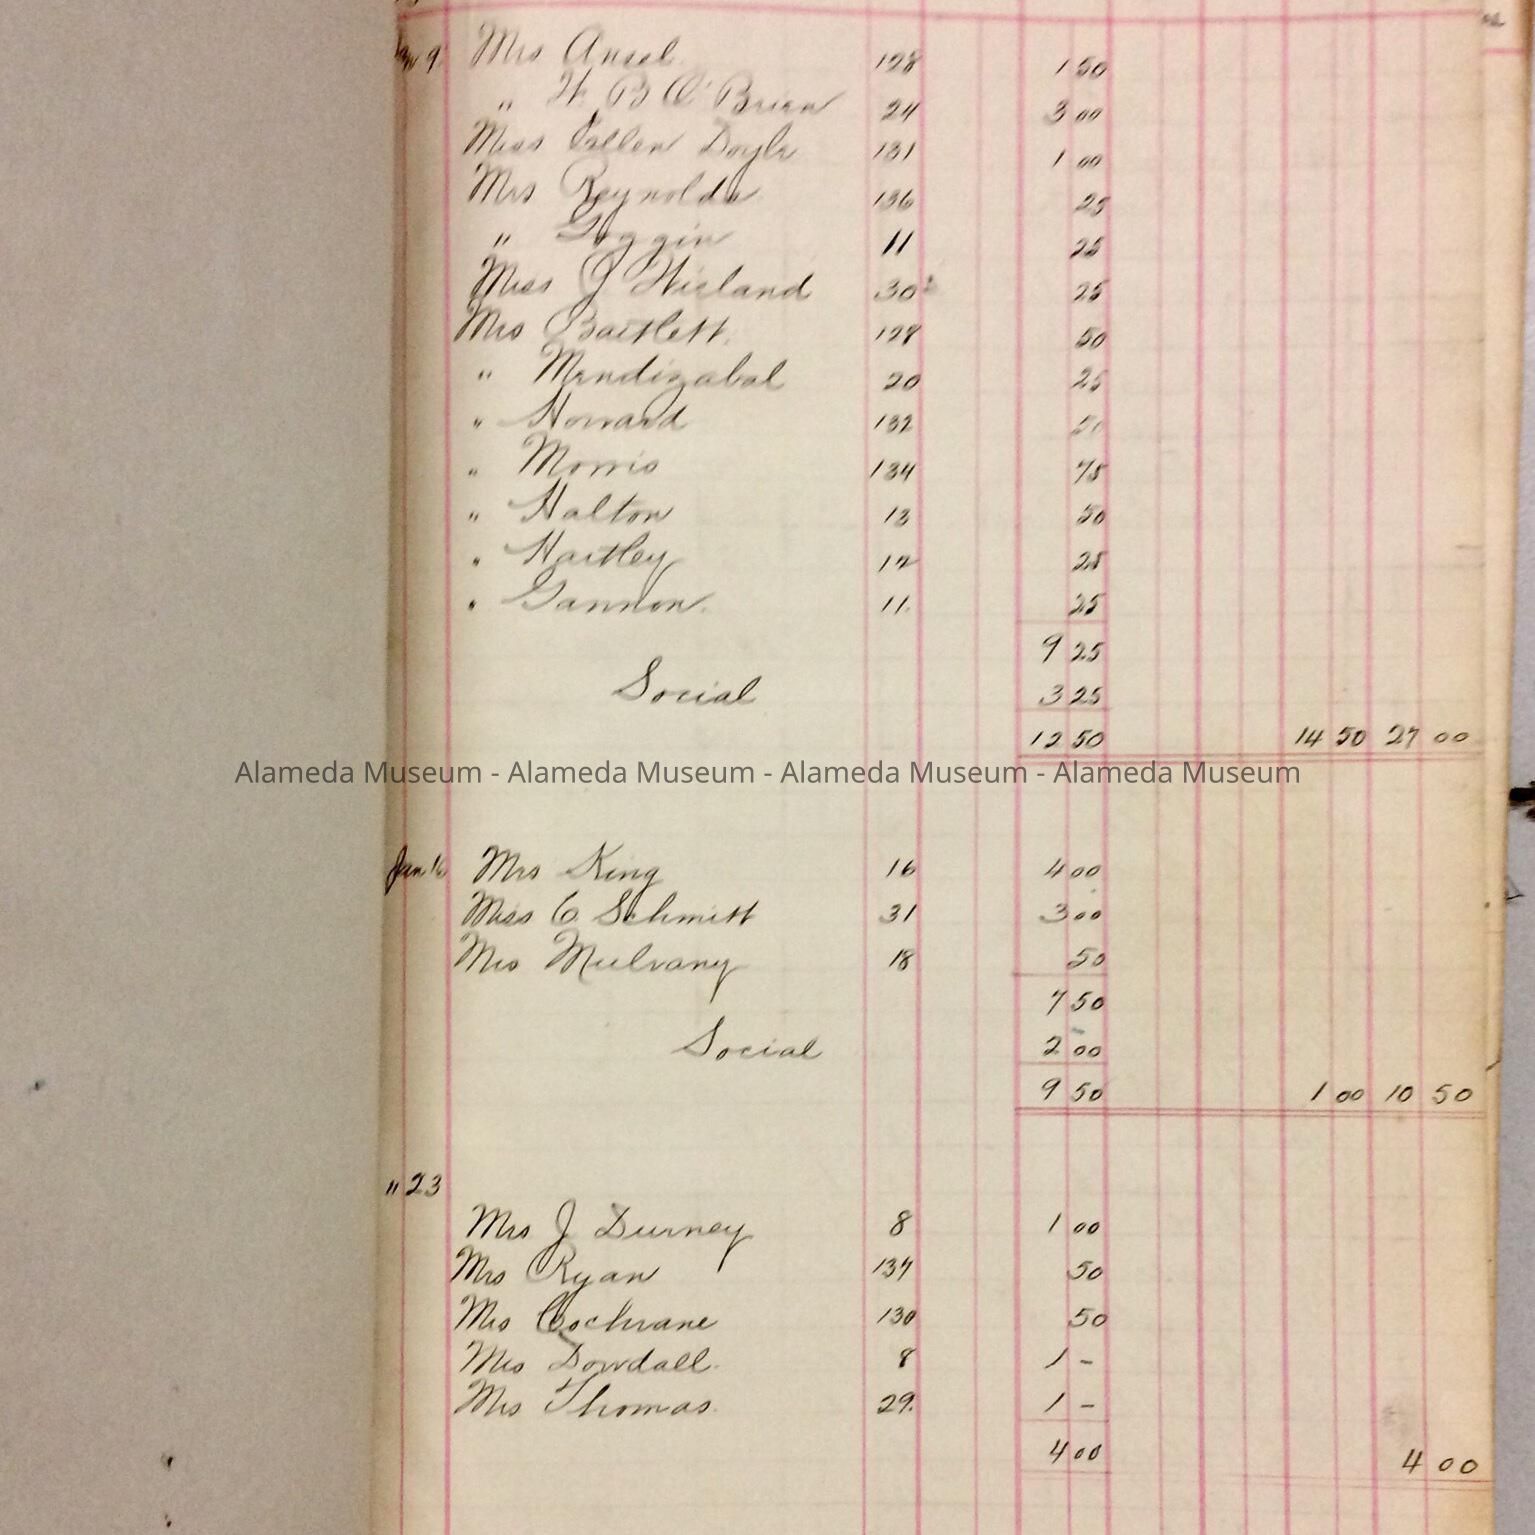 Jan 9 Mrs Ansel 128 1 50
" H. B O'Brien 24 3 00
Miss Ellen Doyle 131 1 00
Mrs Reynolds 136 25
" Goggin 11 25
Miss J Wieland 30 25
Mrs Bartlett. 128 50
" Mendizabal 20 25
" Howard 132
" Morris 134 75
" Halton 13 50
" Hartley 12 25
" Gannon. 11. 25
9 25
Social 3 25
12 50 14 50 27 00
Alameda Museum - Alameda Museum - Alameda Museum - Alameda Museum
Jan 16 Mrs King 16 4 00
Miss C Schmitt 31 3 00
Mrs Mulvany 18 50
7 50
Social 2 00
9 50 1 00 10 50
" 23
Mrs J Durney 8 1 00
Mrs Ryan 137 50
Mrs Cochrane 130 50
Mrs Dowdall. 8 1 -
Mrs Thomas. 29. 1 -
4 00 4 00